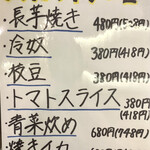 ・長芋焼き 480円(528円)
・冷奴 380円(418円)
・枝豆 380円(418円)
・トマトスライス 380円
(418円)
・青菜炒め 680円(748円)